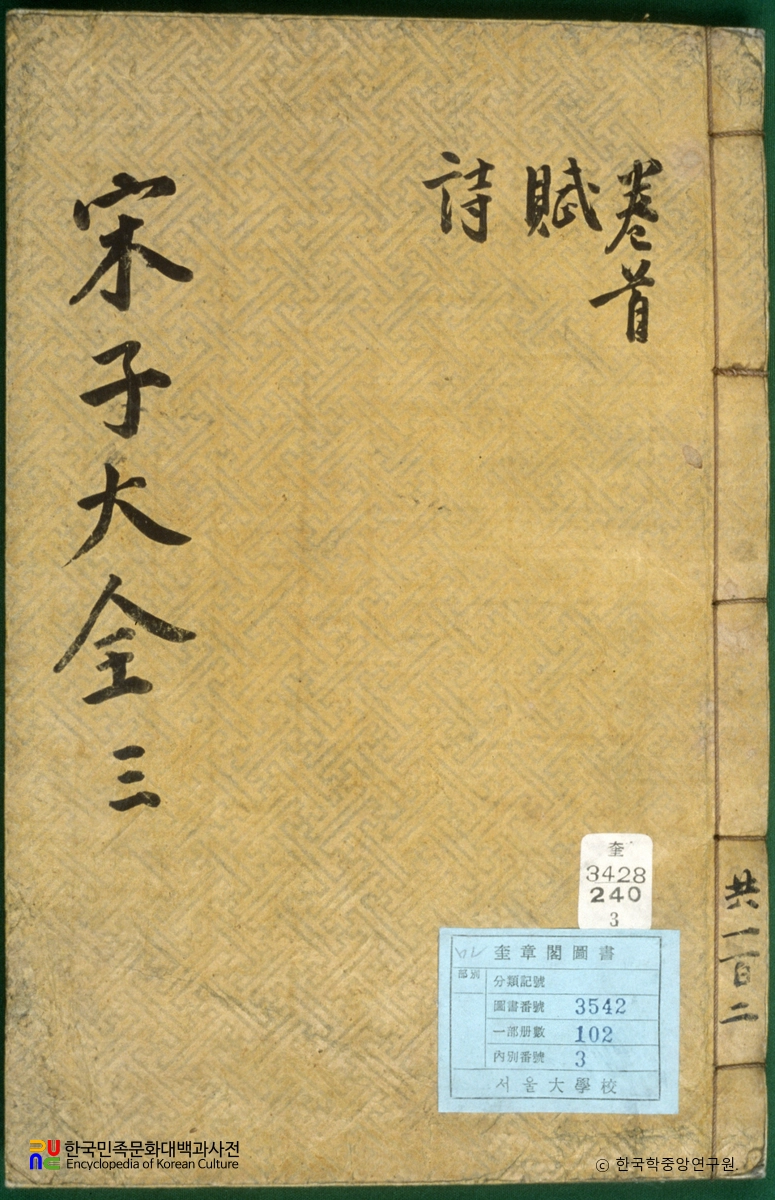 卷首
賦
詩
宋子大全 三
奎
3428
240
3
奎章閣圖書
部別
分類記號
圖書番號 3542
一部册數 102
內別番號 3
서울大學校
共一百二
한국민족문화대백과사전
Encyclopedia of Korean Culture
© 한국학중앙연구원